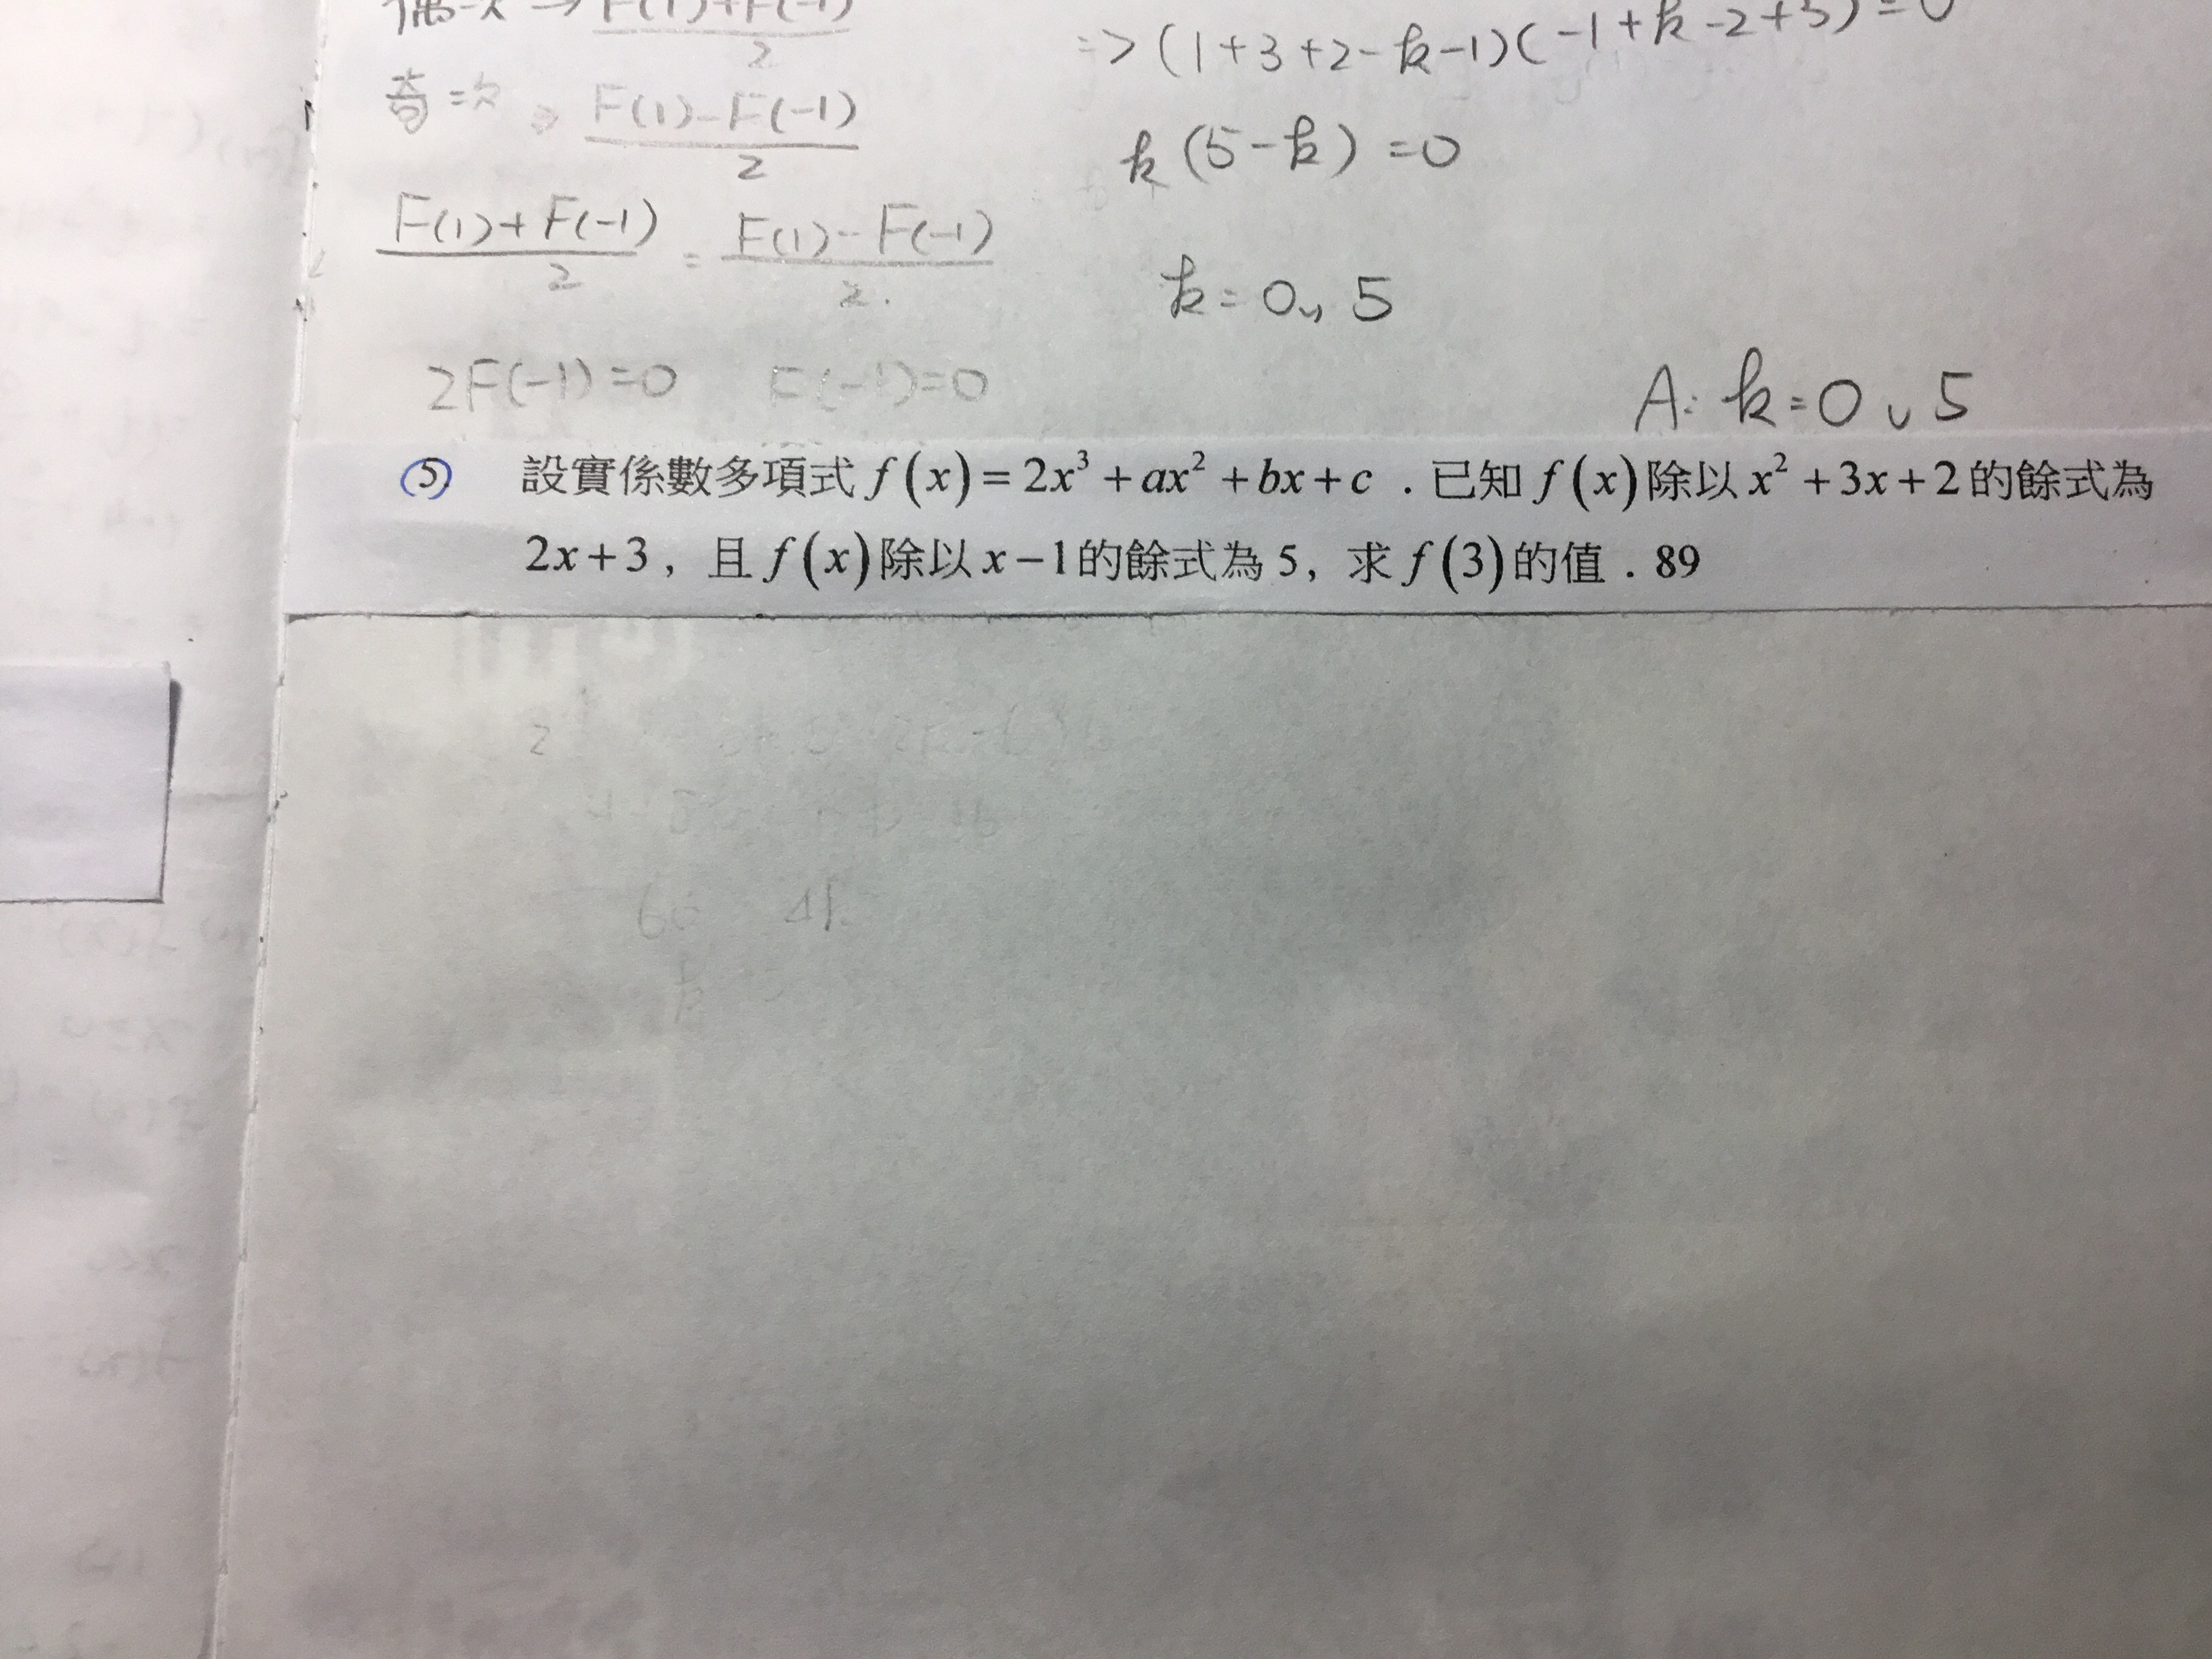 偶次 → F(1)+F(-1)/2
=> (1+3+2-k-1)(-1+k-2+3)=0
奇=次 => F(1)-F(-1)/2
k(5-k)=0
F(1)+F(-1)/2 = F(1)-F(-1)/2.
k=0、5
2F(-1)=0 F(-1)=0
A: k=0、5
5. 設實係數多項式 f(x)=2x³+ax²+bx+c．已知 f(x)除以 x²+3x+2的餘式為
2x+3，且 f(x)除以 x-1的餘式為 5，求 f(3)的值．89